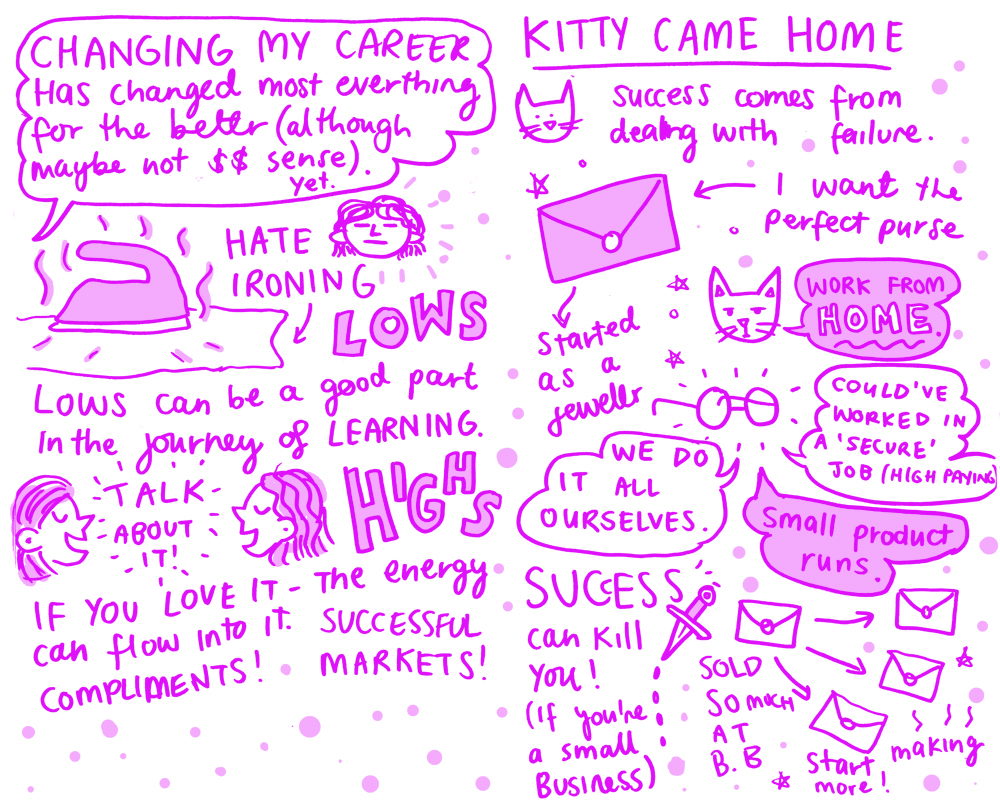 CHANGING MY CAREER
Has changed most everthing
for the better (although
maybe not $$ sense).
yet.
HATE
IRONING
LOWS
LOWS can be a good part
In the journey of LEARNING.
TALK
ABOUT
IT!
HIGHS
IF YOU LOVE IT - The energy
can flow into it.
COMPLIMENTS!
SUCCESSFUL
MARKETS!
KITTY CAME HOME
success comes from
dealing with failure.
I want the
perfect purse
Started
as a
jeweller
WORK FROM
HOME.
COULD'VE
WORKED IN
A 'SECURE'
JOB (HIGH PAYING)
WE DO
IT ALL
OURSELVES.
Small product
runs.
SUCESS
can kill
you!
(if you're
a small
BUSINESS)
SOLD
SO MUCH
AT
B.B
Start making
more!